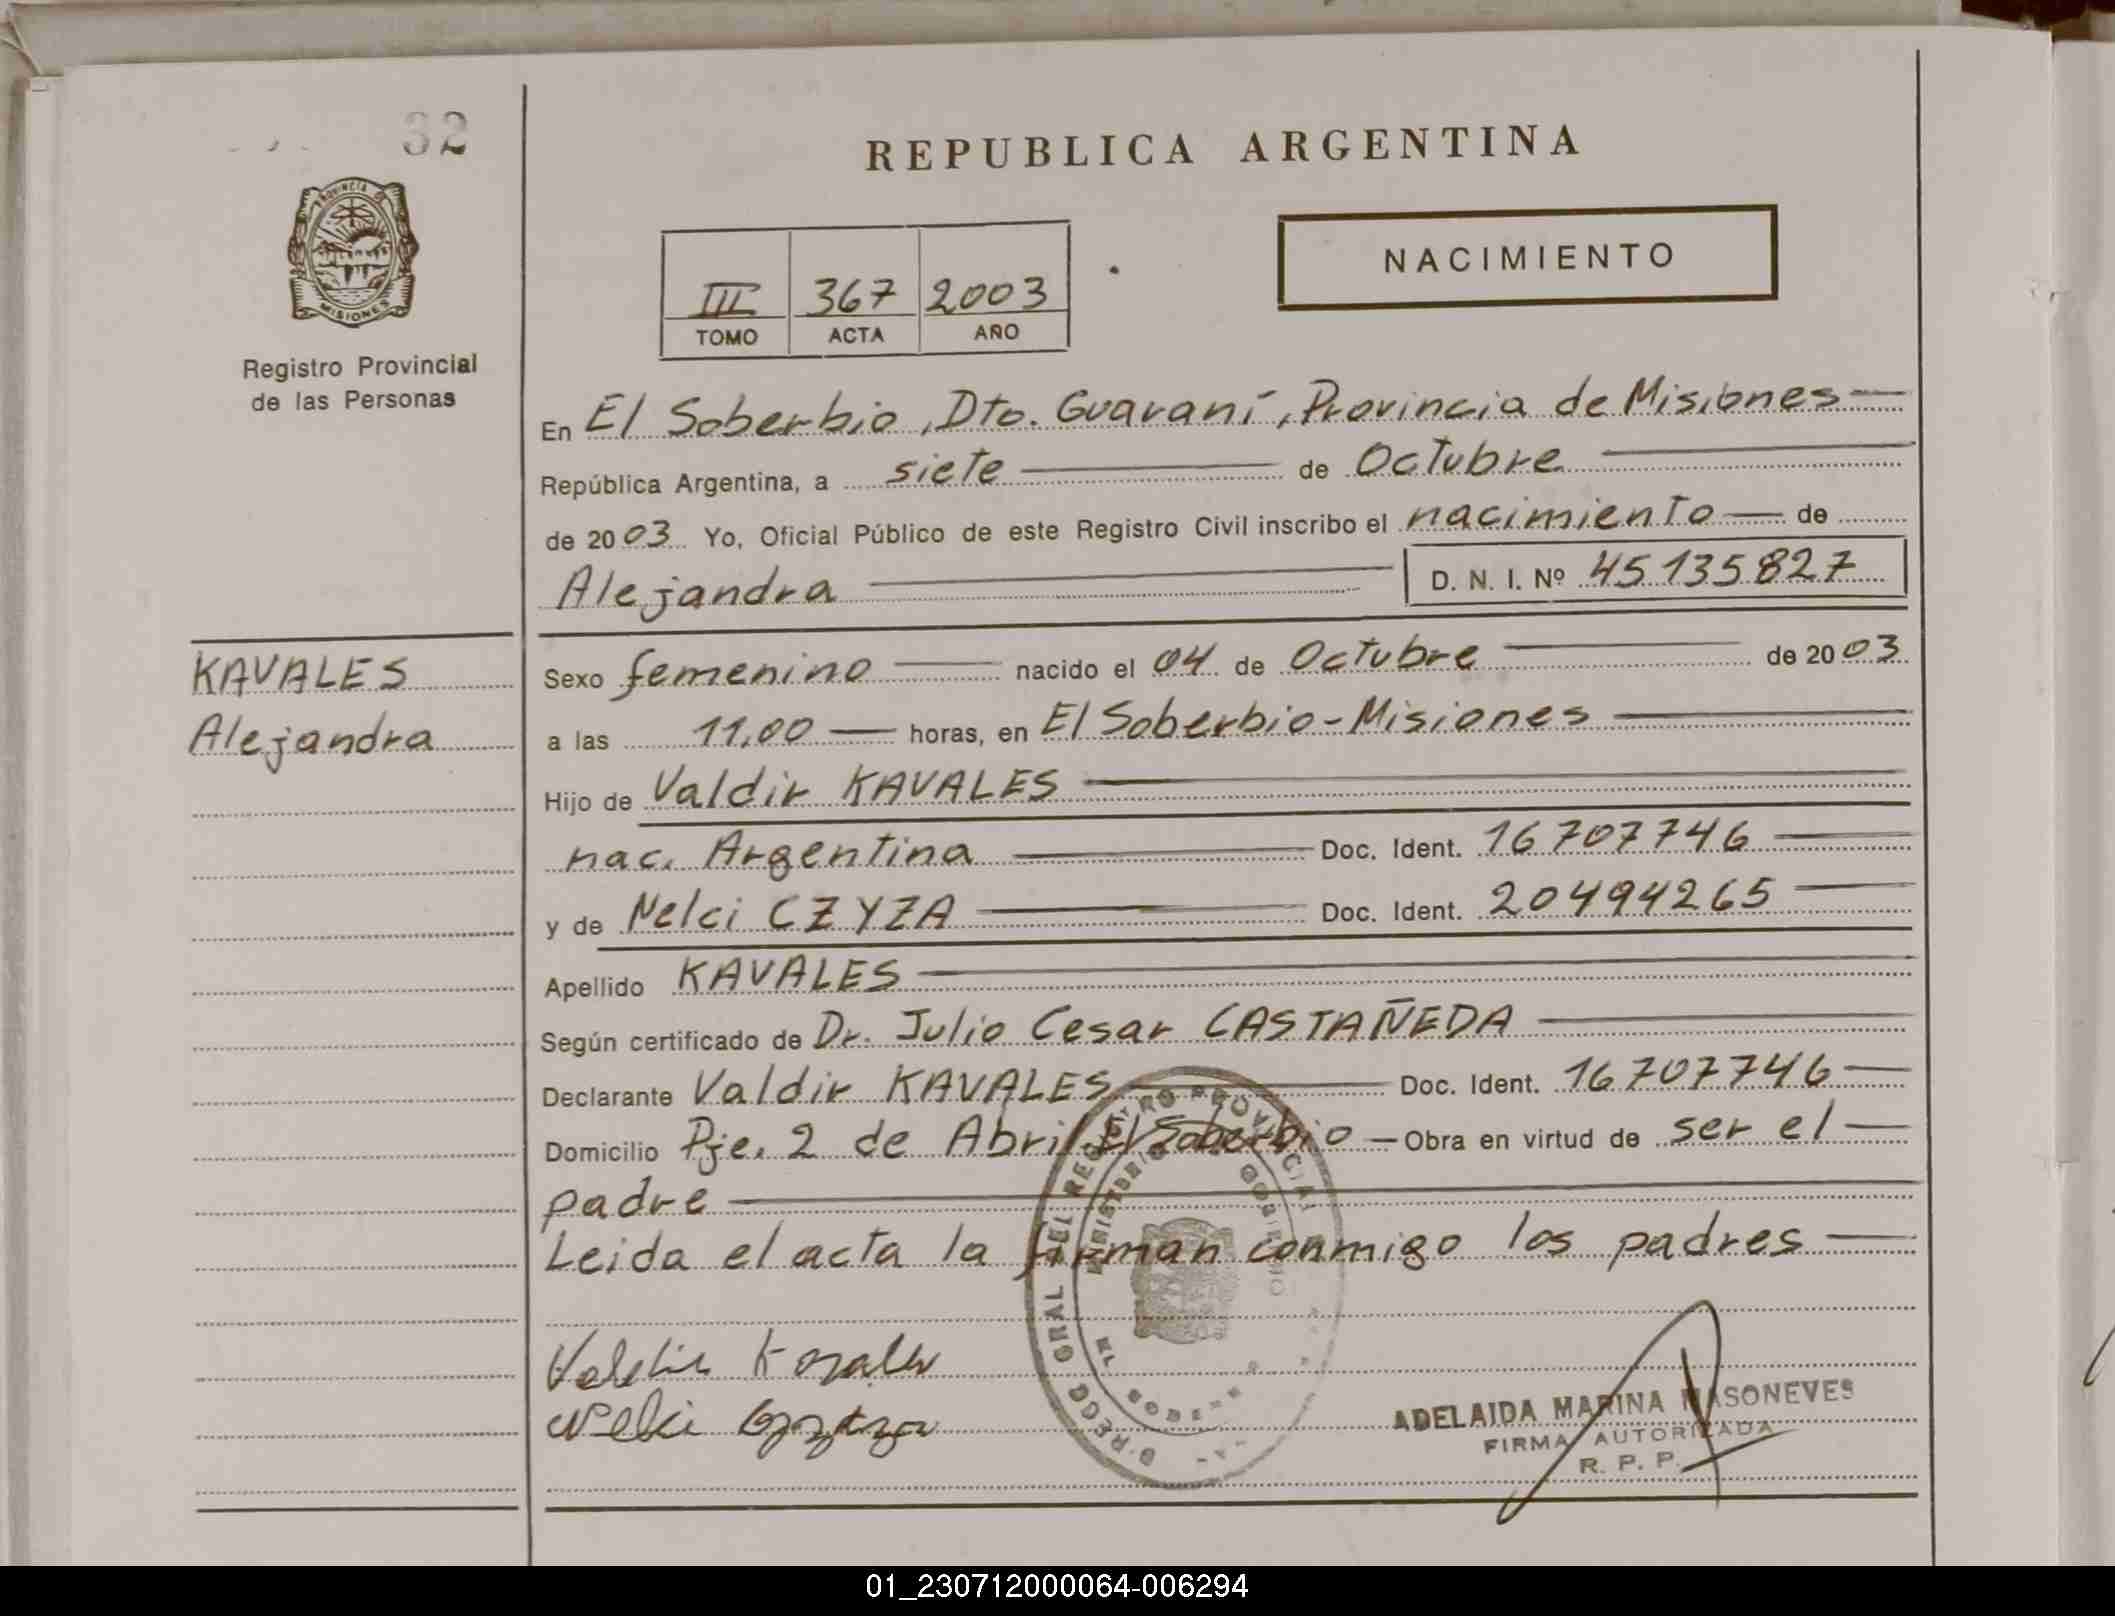 32
REPUBLICA ARGENTINA
PROVINCIA DE
MISIONES
NACIMIENTO
III 367 2003
TOMO ACTA AÑO
Registro Provincial
de las Personas
En El Soberbio, Dto. Guaraní, Provincia de Misiones
República Argentina, a siete de Octubre
de 2003 Yo, Oficial Público de este Registro Civil inscribo el nacimiento de
Alejandra D. N. I. Nº 45135827
KAVALES
Alejandra
Sexo femenino nacido el 04 de Octubre de 2003
a las 11,00 horas, en El Soberbio-Misiones
Hijo de Valdir KAVALES
nac. Argentina Doc. Ident. 16707746
y de Nelci CZYZA Doc. Ident. 20494265
Apellido KAVALES
Según certificado de Dr. Julio Cesar CASTAÑEDA
Declarante Valdir KAVALES Doc. Ident. 16707746
Domicilio Pje. 2 de Abril El Soberbio Obra en virtud de ser el
padre
Leida el acta la firman conmigo los padres
DIRECC GRAL DEL REGISTRO PROVINCIAL
MINISTERIO GOBIERNO
EL SOBERB
ADELAIDA MARINA MASONEVES
FIRMA AUTORIZADA
R. P. P.
01_230712000064-006294